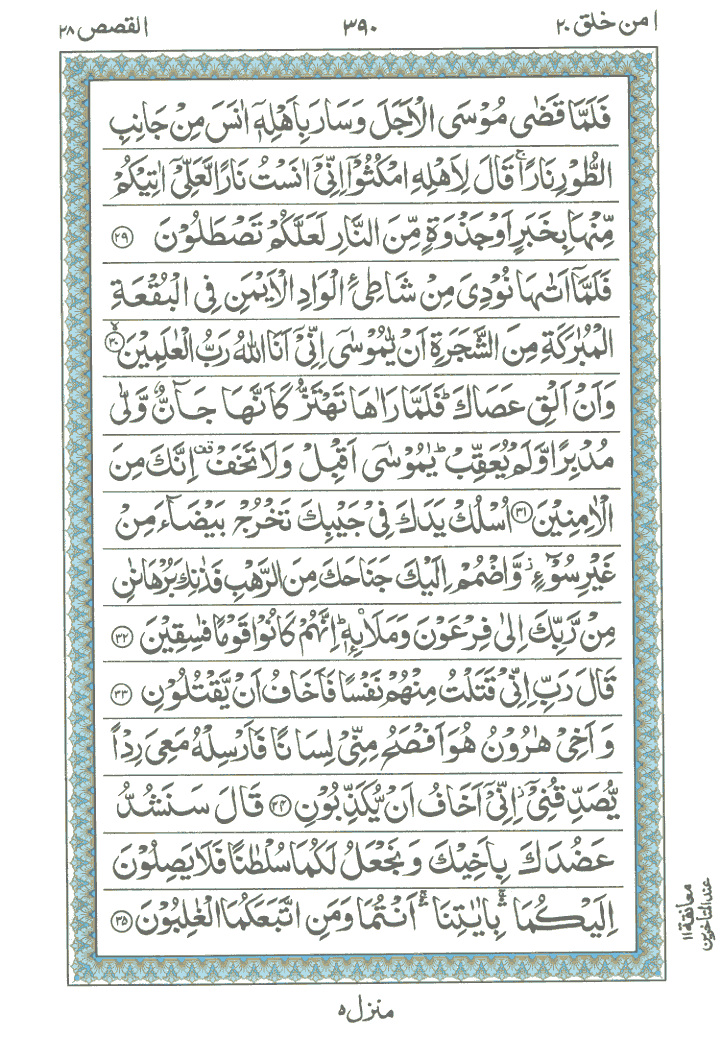 امن خلق ٢٠ ٣٩٠ القصص ٢٨
فَلَمَّا قَضٰى مُوْسَى الْاَجَلَ وَسَارَ بِاَهْلِهٖٓ اٰنَسَ مِنْ جَانِبِ
الطُّوْرِ نَارًا ۚ قَالَ لِاَهْلِهِ امْكُثُوْٓا اِنِّىْٓ اٰنَسْتُ نَارًا لَّعَلِّىْٓ اٰتِيْكُمْ
مِّنْهَا بِخَبَرٍ اَوْ جَذْوَةٍ مِّنَ النَّارِ لَعَلَّكُمْ تَصْطَلُوْنَ ﴿٢٩﴾
فَلَمَّآ اَتٰىهَا نُوْدِىَ مِنْ شَاطِئِ الْوَادِ الْاَيْمَنِ فِى الْبُقْعَةِ
الْمُبٰرَكَةِ مِنَ الشَّجَرَةِ اَنْ يّٰمُوْسٰٓى اِنِّىْٓ اَنَا اللّٰهُ رَبُّ الْعٰلَمِيْنَ ۙ﴿٣٠﴾
وَاَنْ اَلْقِ عَصَاكَ ؕ فَلَمَّا رَاٰهَا تَهْتَزُّ كَاَنَّهَا جَآنٌّ وَّلّٰى
مُدْبِرًا وَّلَمْ يُعَقِّبْ ؕ يٰمُوْسٰٓى اَقْبِلْ وَلَا تَخَفْ ۫ اِنَّكَ مِنَ
الْاٰمِنِيْنَ ﴿٣١﴾ اُسْلُكْ يَدَكَ فِىْ جَيْبِكَ تَخْرُجْ بَيْضَآءَ مِنْ
غَيْرِ سُوْٓءٍ ؗ وَّاضْمُمْ اِلَيْكَ جَنَاحَكَ مِنَ الرَّهْبِ فَذٰنِكَ بُرْهَانٰنِ
مِنْ رَّبِّكَ اِلٰى فِرْعَوْنَ وَمَلَا۟ئِهٖ ؕ اِنَّهُمْ كَانُوْا قَوْمًا فٰسِقِيْنَ ﴿٣٢﴾
قَالَ رَبِّ اِنِّىْ قَتَلْتُ مِنْهُمْ نَفْسًا فَاَخَافُ اَنْ يَّقْتُلُوْنِ ﴿٣٣﴾
وَاَخِىْ هٰرُوْنُ هُوَ اَفْصَحُ مِنِّىْ لِسَانًا فَاَرْسِلْهُ مَعِىَ رِدْاً
يُّصَدِّقُنِىْٓ ؗ اِنِّىْٓ اَخَافُ اَنْ يُّكَذِّبُوْنِ ﴿٣٤﴾ قَالَ سَنَشُدُّ
عَضُدَكَ بِاَخِيْكَ وَنَجْعَلُ لَكُمَا سُلْطٰنًا فَلَا يَصِلُوْنَ
اِلَيْكُمَا ۛۚ بِاٰيٰتِنَآ ۛۚ اَنْتُمَا وَمَنِ اتَّبَعَكُمَا الْغٰلِبُوْنَ ﴿٣٥﴾
معانقة ١١
عند المتاخرين
منزل ٥